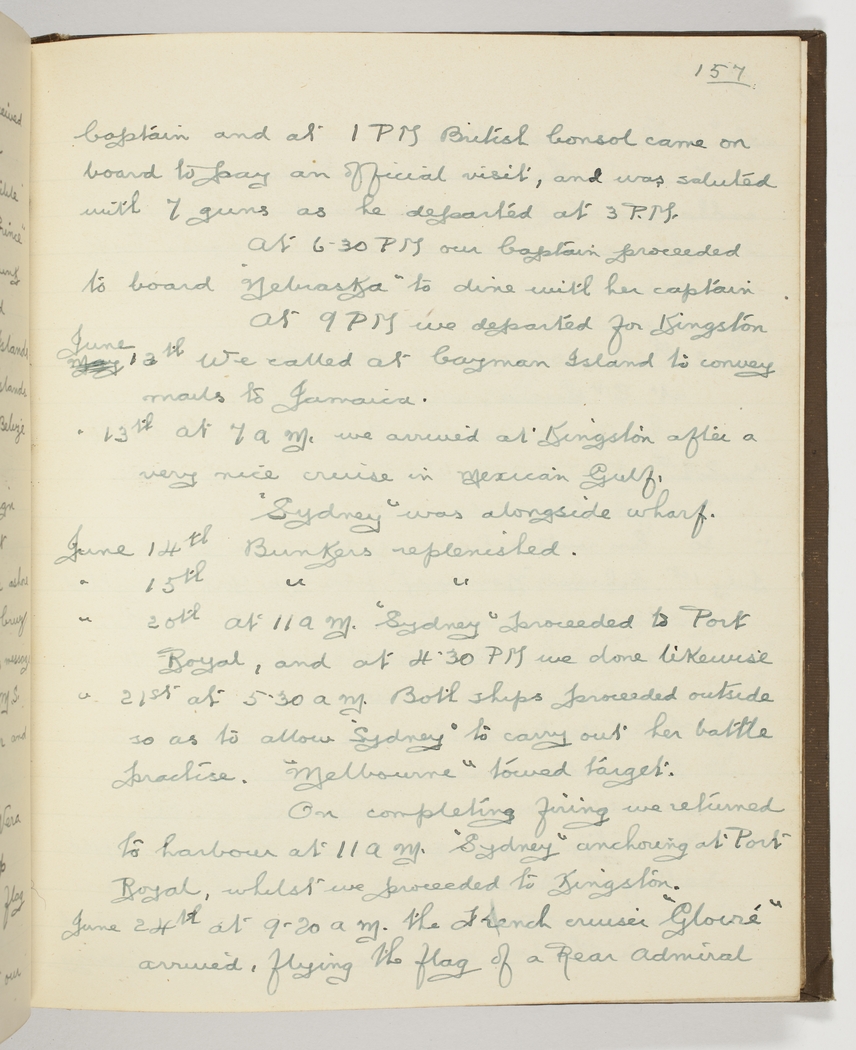 157
Captain and at 1 PM British Consol came on
board to pay an official visit, and was saluted
with 7 guns as he departed at 3 P.M.
At 6-30 PM our Captain proceeded
to board "Nebraska" to dine with her captain
At 9 PM we departed for Kingston
June
May 12th We called at Cayman Island to convey
mails to Jamaica.
" 13th at 7 a m. we arrived at Kingston after a
very nice cruise in Mexican Gulf.
"Sydney" was alongside wharf.
June 14th Bunkers replenished.
" 15th " "
" 20th at 11 a m. "Sydney" proceeded to Port
Royal, and at 4-30 PM we done likewise
" 21st at 5-30 a m. Both ships proceeded outside
so as to allow "Sydney" to carry out her battle
practise. "Melbourne" towed target.
On completing firing we returned
to harbour at 11 a m. "Sydney" anchoring at Port
Royal, whilst we proceeded to Kingston.
June 24th at 9-20 a m. the French cruiser "Glowré"
arrived, flying the flag of a Rear Admiral